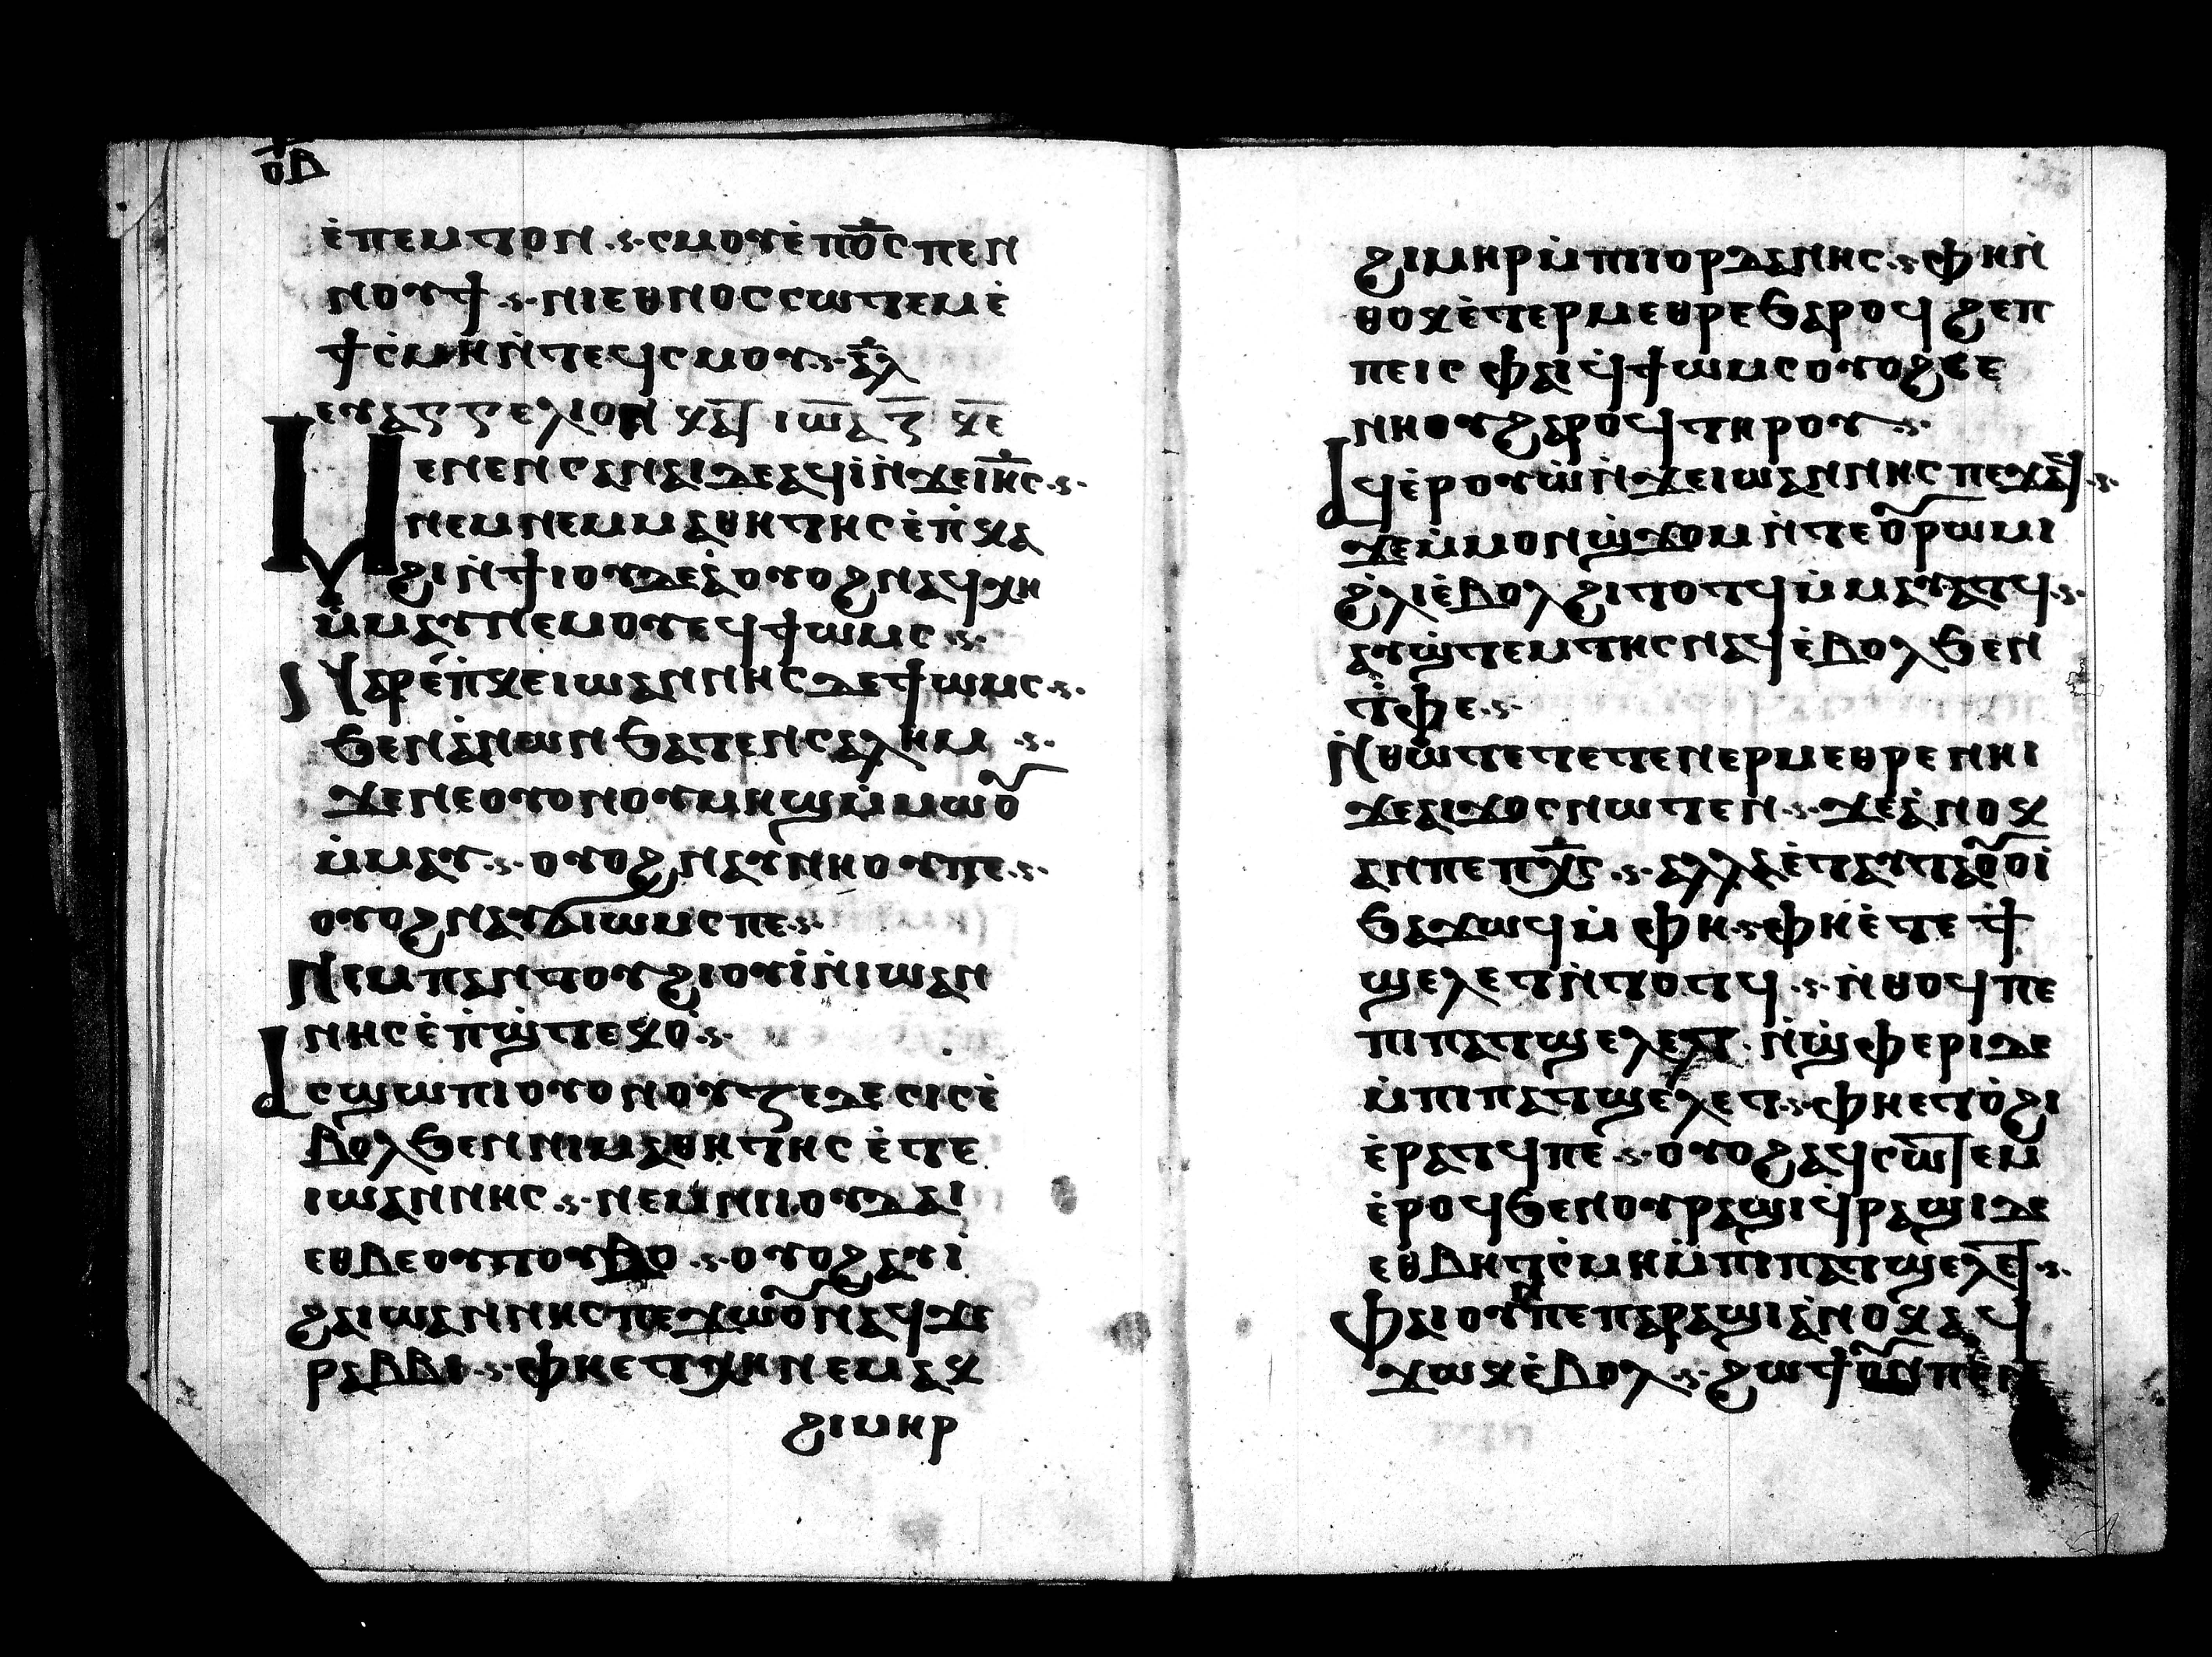 ⲟⲃ
ⲉ̇ⲡⲉⲙⲧⲟⲛ ⲥⲙⲟⲩⲉ̇ⲡⲟ̅ⲥ̅ ⲡⲉⲛ
ⲛⲟⲩϯ ⲛⲓⲉⲑⲛⲟⲥ ⲥⲱⲧⲉⲙ ⲉ̇
ϯⲥ̇ⲙⲏ ⲛ̇ⲧⲉϥⲥⲙⲟⲩ ⲁ̅ⲗ̅
ⲉⲩⲁⲅⲅⲉⲗⲓⲟⲛ ⲕⲁ̅ ⲓⲱ̅ⲁ ⲍ̅ ⲕ̅ⲉ̅
Ⲙⲉⲛⲉⲛⲥⲁⲛⲁⲓ ⲇⲉ ⲁϥⲓ̇ ⲛ̇ϫⲉ ⲓⲏ̅ⲥ
ⲛⲉⲙ ⲛⲉⲙⲙⲁⲑⲏⲧⲏⲥ ⲉ̇ⲡ̇ⲕⲁ
ϩⲓ ⲛ̇ϯⲓⲟⲩⲇⲉⲁ̇ ⲟⲩⲟϩ ⲛⲁϥⲭⲏ
ⲙ̇ⲙⲁⲩ ⲛⲉⲙⲟⲩ ⲉϥϯⲱⲙⲥ
Ⲛⲁⲣⲉ ⲡ̇ⲕⲉⲓⲱⲁⲛⲛⲏⲥ ⲇⲉ ϯⲱⲙⲥ
ϧⲉⲛ ⲁⲛⲱⲛ ϧⲁⲧⲉⲛ ⲥⲁⲗⲏⲙ
ϫⲉ ⲛⲉⲟⲩⲟⲛ ⲟⲩⲙⲏϣ ⲙ̇ⲙⲱⲟ̅
ⲙ̇ⲙⲁⲩ ⲟⲩⲟϩ ⲛⲁⲩⲛⲏⲟⲩⲡⲉ
ⲟⲩⲟϩ ⲛⲁⲩϭⲓⲱⲙⲥ ⲡⲉ
Ⲛⲉⲙⲡⲁⲛⲧⲟⲩϩⲓⲟⲩⲓ̇ ⲛ̇ⲓⲱⲁⲛ
ⲛⲏⲥ ⲉ̇ⲡ̇ϣ̇ⲧⲉⲕⲟ̇
Ⲁⲥϣⲱⲡⲓ ⲟⲩⲟⲛ ⲟⲩⲍⲉⲇⲉⲥⲓⲥ ⲉ̇
ⲃⲟⲗ ϧⲉⲛ ⲛⲓⲙⲁⲑⲏⲧⲏⲥ ⲉ̇ⲧⲉ
ⲓⲱⲁⲛⲛⲏⲥ ⲛⲉⲙ ⲛⲓⲓⲟⲩⲇⲁⲓ
ⲉⲑⲃⲉ ⲟⲩⲧⲟⲩⲃⲟ ⲟⲩⲟϩ ⲁⲩⲓ̇
ϩⲁ ⲓⲱⲁⲛⲛⲏⲥ ⲡⲉϫⲱⲟ̅ ⲛⲁϥ ϫⲉ
ⲣⲁⲃⲃⲓ ⲫⲏ ⲉⲧⲭⲏ ⲛⲉⲙⲁⲕ
ϩⲓⲙⲏⲣ
ϩⲓⲙⲏⲣ ⲙ̇ⲡⲓⲓⲟⲣⲇⲁⲛⲏⲥ ⲫⲏ ⲛ̇
ⲑⲟⲕ ⲉ̇ⲧⲉⲣⲙⲉⲑⲣⲉ ϧⲁⲣⲟϥ ϩⲉⲡ
ⲡⲉ ⲓⲥ ⲫⲁⲓ ϥ̇ϯⲱⲙⲥ ⲟⲩⲟϩ ⲥⲉ
ⲛⲏⲟⲩ ϩⲁⲣⲟϥ ⲧⲏⲣⲟⲩ
Ⲁϥⲉ̇ⲣⲟⲩⲱ̇ ⲛ̇ϫⲉ ⲓⲱⲁⲛⲛⲏⲥ ⲡⲉϫⲁϥ
ϫⲉ ⲙ̇ⲙⲟⲛ ϣ̇ϫⲟⲙ ⲛ̇ⲧⲉ ⲟ̅ⲣⲱⲙⲓ
ϩ̇ⲗⲓ ⲉ̇ⲃⲟⲗ ϩⲓⲧⲟⲧϥ ⲙ̇ⲙⲁⲩⲁⲧϥ
ⲁⲩϣ̇ⲧⲉⲙⲧⲏⲥ ⲛⲁϥ ⲉ̇ⲃⲟⲗ ϧⲉⲛ
ⲧ̇ⲫⲉ
Ⲛ̇ⲑⲱⲧⲉ ⲧⲉⲧⲉⲛⲉⲣⲙⲉⲑⲣⲉ ⲛⲏⲓ
ϫⲉ ⲁⲓϫⲟⲥ ⲛⲱⲧⲉⲛ ϫⲉ ⲁ̇ⲛⲟⲕ
ⲁⲛ ⲡⲉ ⲡⲭ̅ⲥ ⲁⲗⲗⲁ ⲉ̇ⲧⲁⲩⲧⲁⲟ̅ⲟⲓ̇
ϧⲁϫⲱϥ ⲙ̇ⲫⲏ ⲫⲏ ⲉ̇ⲧⲉ ϯ
ϣⲉⲗⲉⲧ ⲛ̇ⲧⲟⲧϥ ⲛ̇ⲑⲟϥ ⲡⲉ
ⲡⲓⲡⲁⲧϣⲉⲗⲉⲧ ⲛ̇ϣ̇ⲫⲉⲣⲓ ⲇⲉ
ⲙ̇ⲡⲓⲡⲁⲧϣⲉⲗⲉⲧ ⲫⲏ ⲉⲧⲟ̇ϩⲓ
ⲉ̇ⲣⲁⲧϥ ⲡⲉ ⲟⲩⲟϩ ⲁϥⲥⲱ̅ⲧⲉⲙ
ⲉ̇ⲣⲟϥ ϧⲉⲛ ⲟⲩⲣⲁϣⲓ ϥ̇ⲣⲁϣⲓ ⲇⲉ
ⲉⲑⲃⲏⲧⲥ̇ⲙⲏ ⲙ̇ⲡⲓⲡⲁⲧϣⲉⲗⲉ̅ⲧ
Ⲫⲁⲓ ⲟⲩⲛ ⲡⲉ ⲡⲁⲣⲁϣⲓ ⲁ̇ⲛⲟⲕ ⲁϥ
ϫⲱⲕ ⲉ̇ⲃⲟⲗ ϩⲱϯ ⲟ̅ⲛ ⲡⲉ